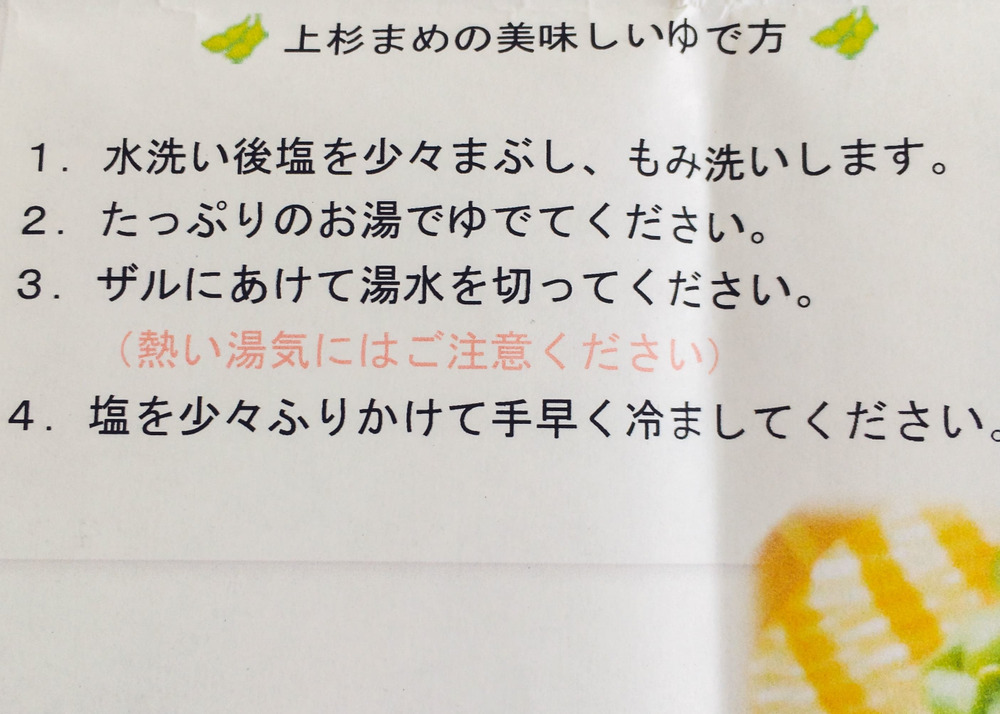 上杉まめの美味しいゆで方
1. 水洗い後塩を少々まぶし、もみ洗いします。
2. たっぷりのお湯でゆでてください。
3. ザルにあけて湯水を切ってください。
(熱い湯気にはご注意ください)
4. 塩を少々ふりかけて手早く冷ましてください。